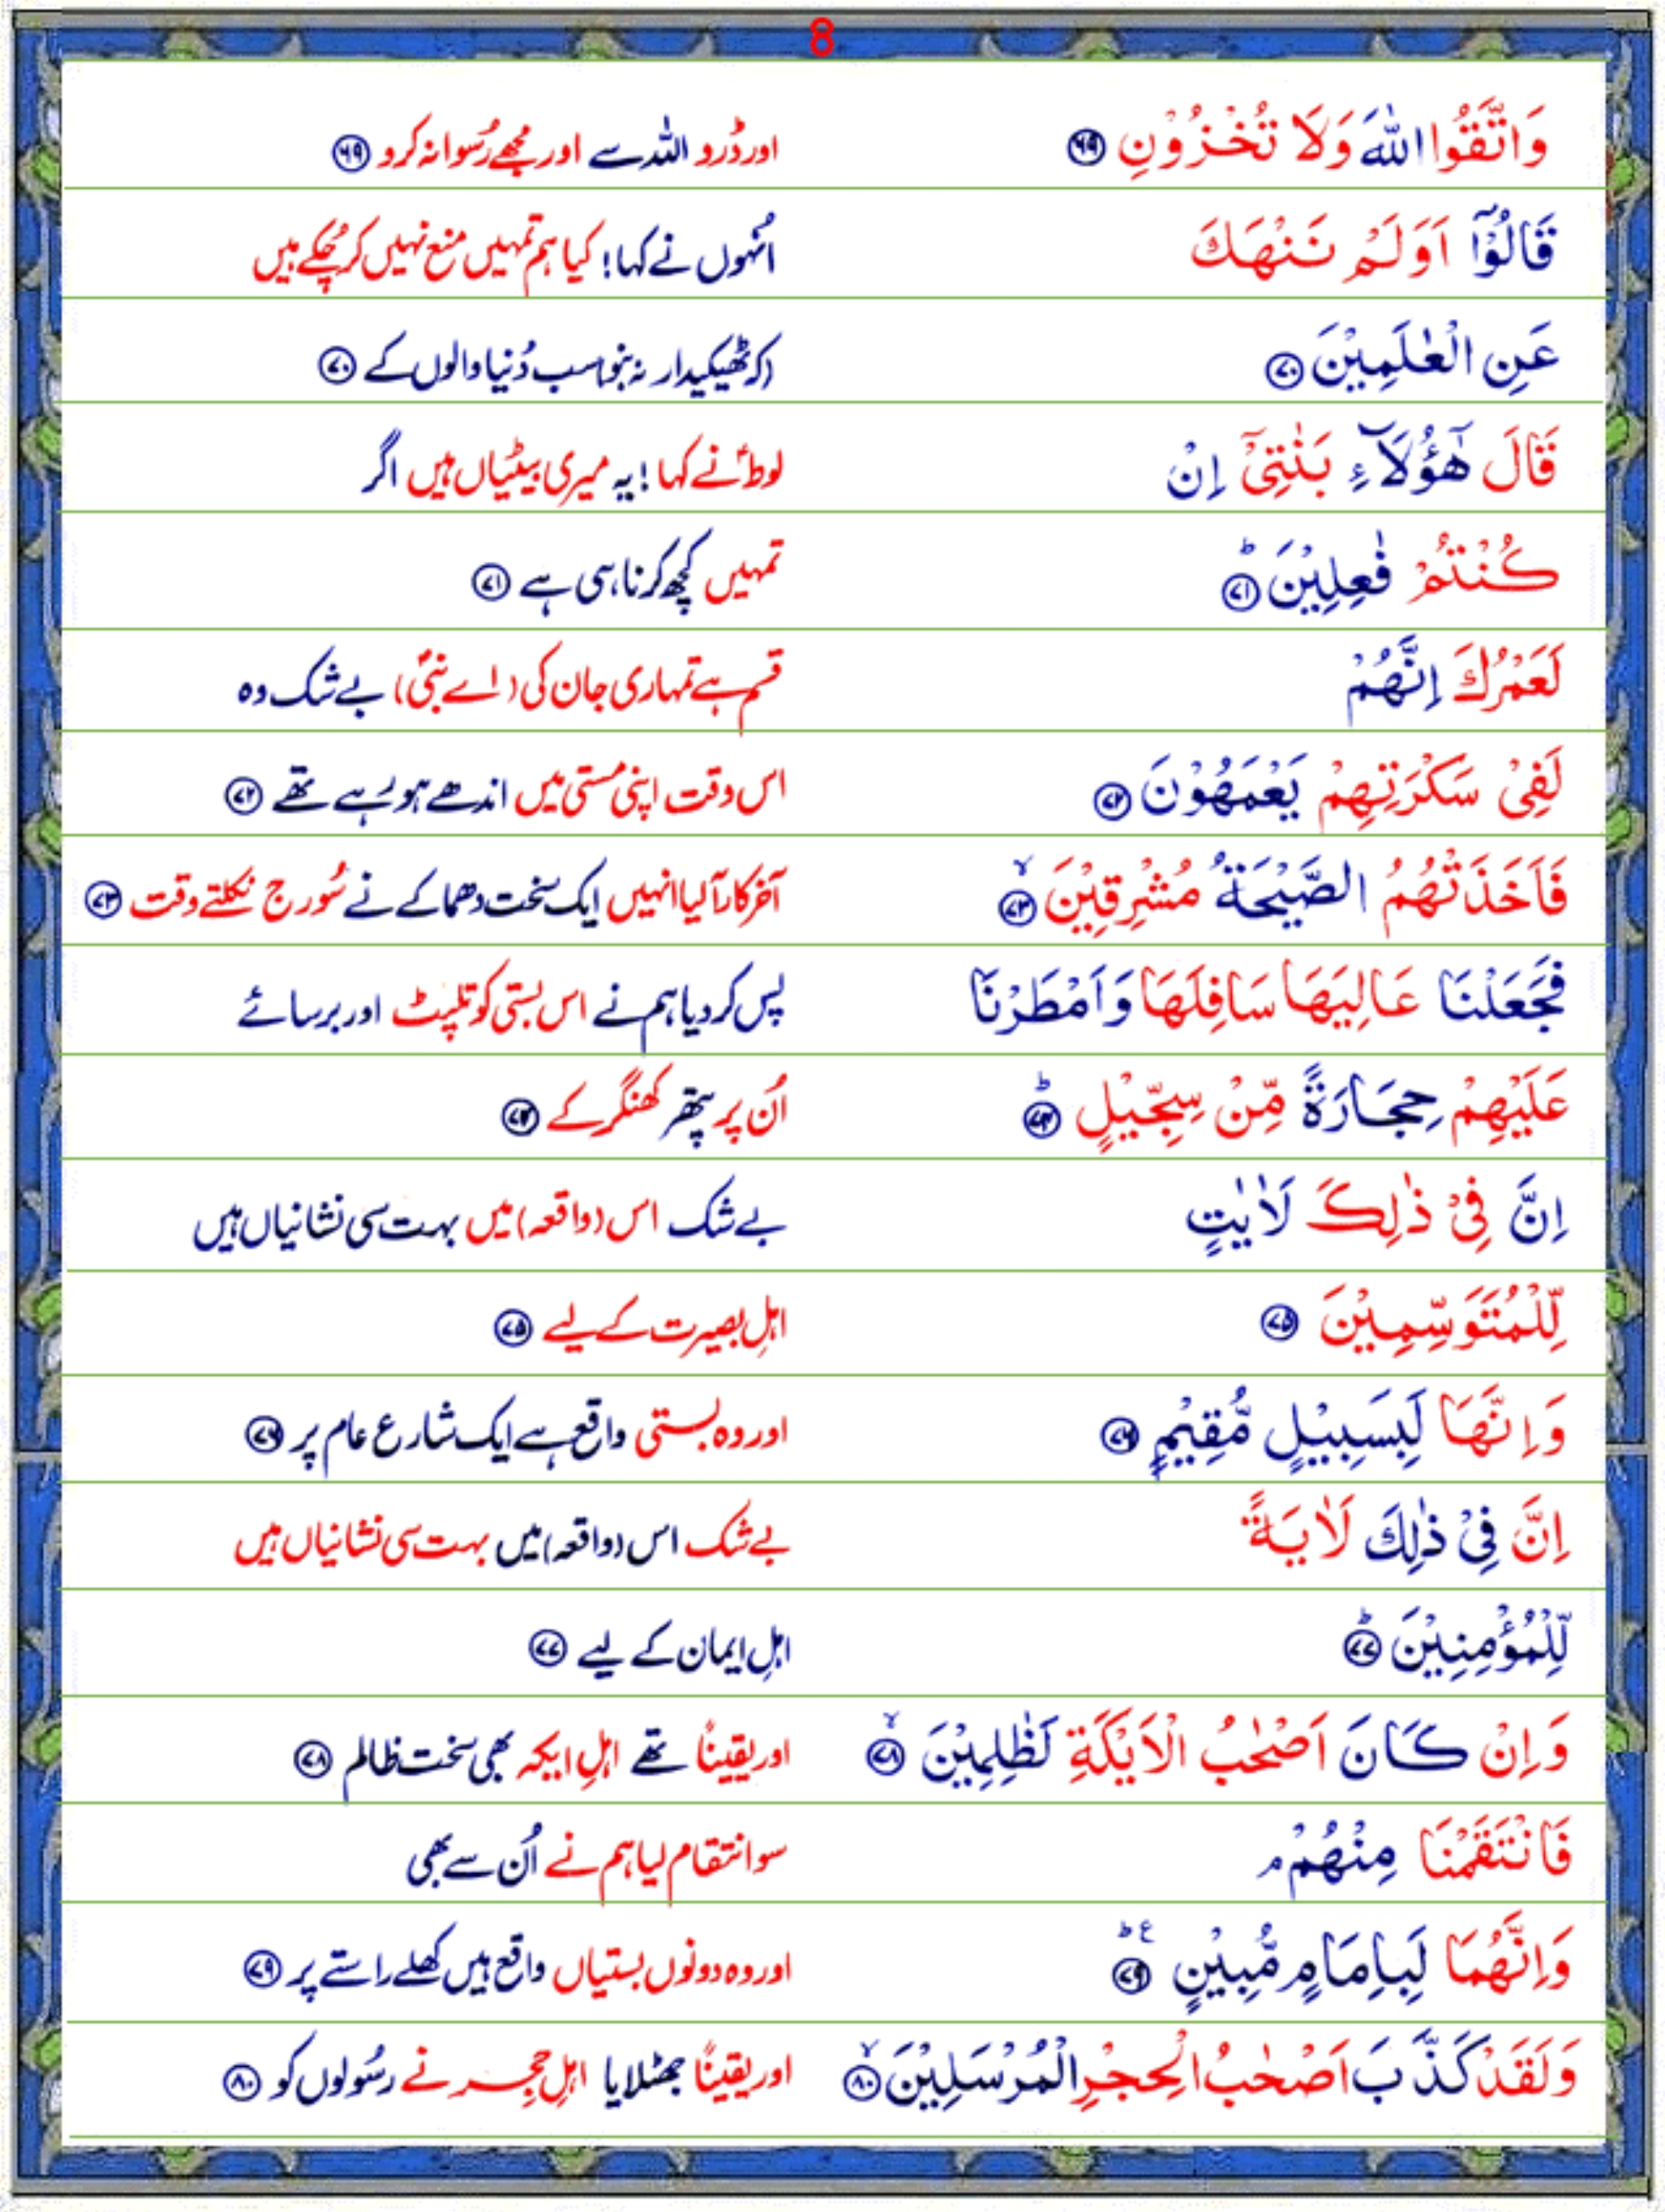 8
وَاتَّقُوا اللّٰهَ وَلَا تُخْزُوْنِ ۶۹ اور ڈرو اللہ سے اور مجھے رُسوا نہ کرو ۶۹
قَالُوْۤا اَوَلَمْ نَنْهَكَ اُنہوں نے کہا! کیا ہم تمہیں منع نہیں کر چُکے ہیں
عَنِ الْعٰلَمِيْنَ ۷۰ (کہ ٹھیکیدار نہ بنو) سب دُنیا والوں کے ۷۰
قَالَ هٰٓؤُلَآءِ بَنٰتِىْۤ اِنْ لوطؑ نے کہا! یہ میری بیٹیاں ہیں اگر
كُنْتُمْ فٰعِلِيْنَ ؕ ۷۱ تمہیں کچھ کرنا ہی ہے ۷۱
لَعَمْرُكَ اِنَّهُمْ قسم ہے تمہاری جان کی (اے نبیؐ) بے شک وہ
لَفِىْ سَكْرَتِهِمْ يَعْمَهُوْنَ ۷۲ اس وقت اپنی مستی میں اندھے ہو رہے تھے ۷۲
فَاَخَذَتْهُمُ الصَّيْحَةُ مُشْرِقِيْنَ ۙ ۷۳ آخر کار آ لیا انہیں ایک سخت دھماکے نے سُورج نکلتے وقت ۷۳
فَجَعَلْنَا عَالِيَهَا سَافِلَهَا وَاَمْطَرْنَا پس کر دیا ہم نے اس بستی کو تلپٹ اور برسائے
عَلَيْهِمْ حِجَارَةً مِّنْ سِجِّيْلٍ ؕ ۷۴ اُن پر پتھر کھنگر کے ۷۴
اِنَّ فِىْ ذٰلِكَ لَاٰيٰتٍ بے شک اس (واقعہ) میں بہت سی نشانیاں ہیں
لِّلْمُتَوَسِّمِيْنَ ۷۵ اہلِ بصیرت کے لیے ۷۵
وَاِنَّهَا لَبِسَبِيْلٍ مُّقِيْمٍ ۷۶ اور وہ بستی واقع ہے ایک شارع عام پر ۷۶
اِنَّ فِىْ ذٰلِكَ لَاٰيَةً بے شک اس (واقعہ) میں بہت سی نشانیاں ہیں
لِّلْمُؤْمِنِيْنَ ؕ ۷۷ اہلِ ایمان کے لیے ۷۷
وَاِنْ كَانَ اَصْحٰبُ الْاَيْكَةِ لَظٰلِمِيْنَ ۙ ۷۸ اور یقیناً تھے اہلِ ایکہ بھی سخت ظالم ۷۸
فَانْتَقَمْنَا مِنْهُمْ ۘ سو انتقام لیا ہم نے اُن سے بھی
وَاِنَّهُمَا لَبِاِمَامٍ مُّبِيْنٍ ؕ ع ۷۹ اور وہ دونوں بستیاں واقع ہیں کھلے راستے پر ۷۹
وَلَقَدْ كَذَّبَ اَصْحٰبُ الْحِجْرِ الْمُرْسَلِيْنَ ۙ ۸۰ اور یقیناً جھٹلایا اہلِ حِجر نے رسُولوں کو ۸۰